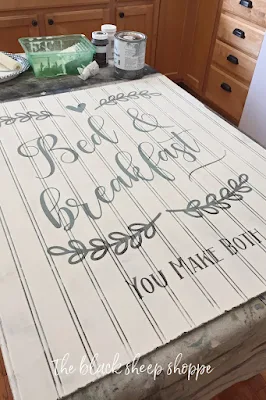 Bed &
breakfast
You Make Both
The black sheep shoppe